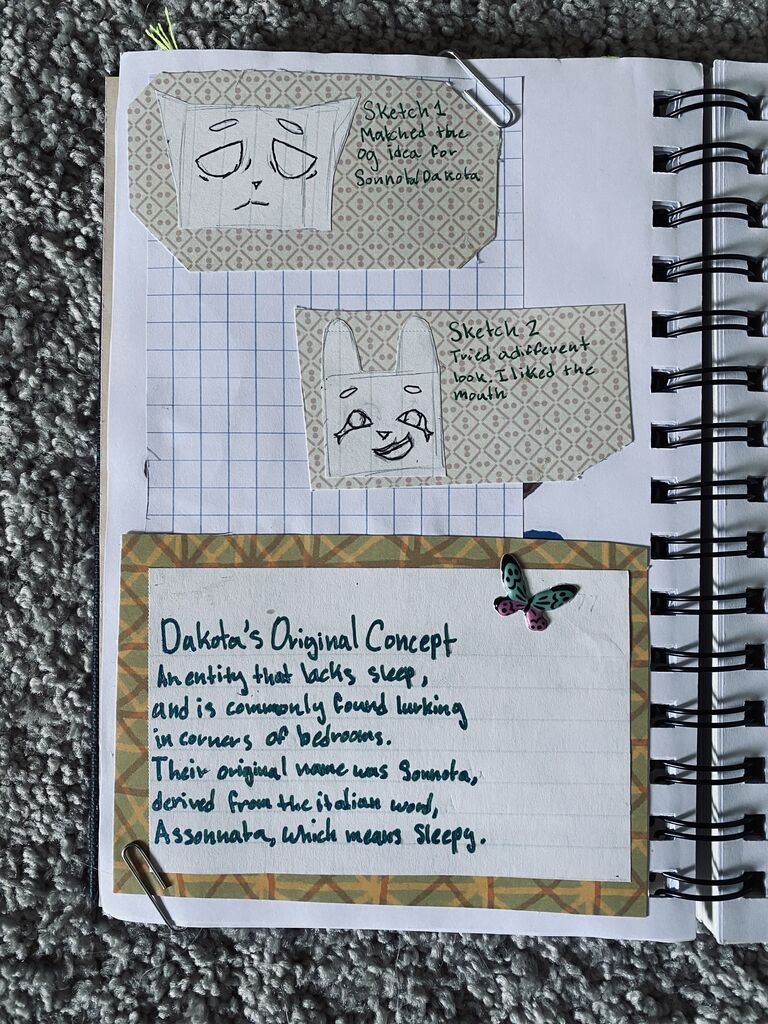 Sketch 1
Matched the
og idea for
Sonnota/Dakota
Sketch 2
Tried a different
look. I liked the
mouth
Dakota's Original Concept
An entity that lacks sleep,
and is commonly found lurking
in corners of bedrooms.
Their original name was Sonnota,
derived from the italian word,
Assonnata, which means Sleepy.